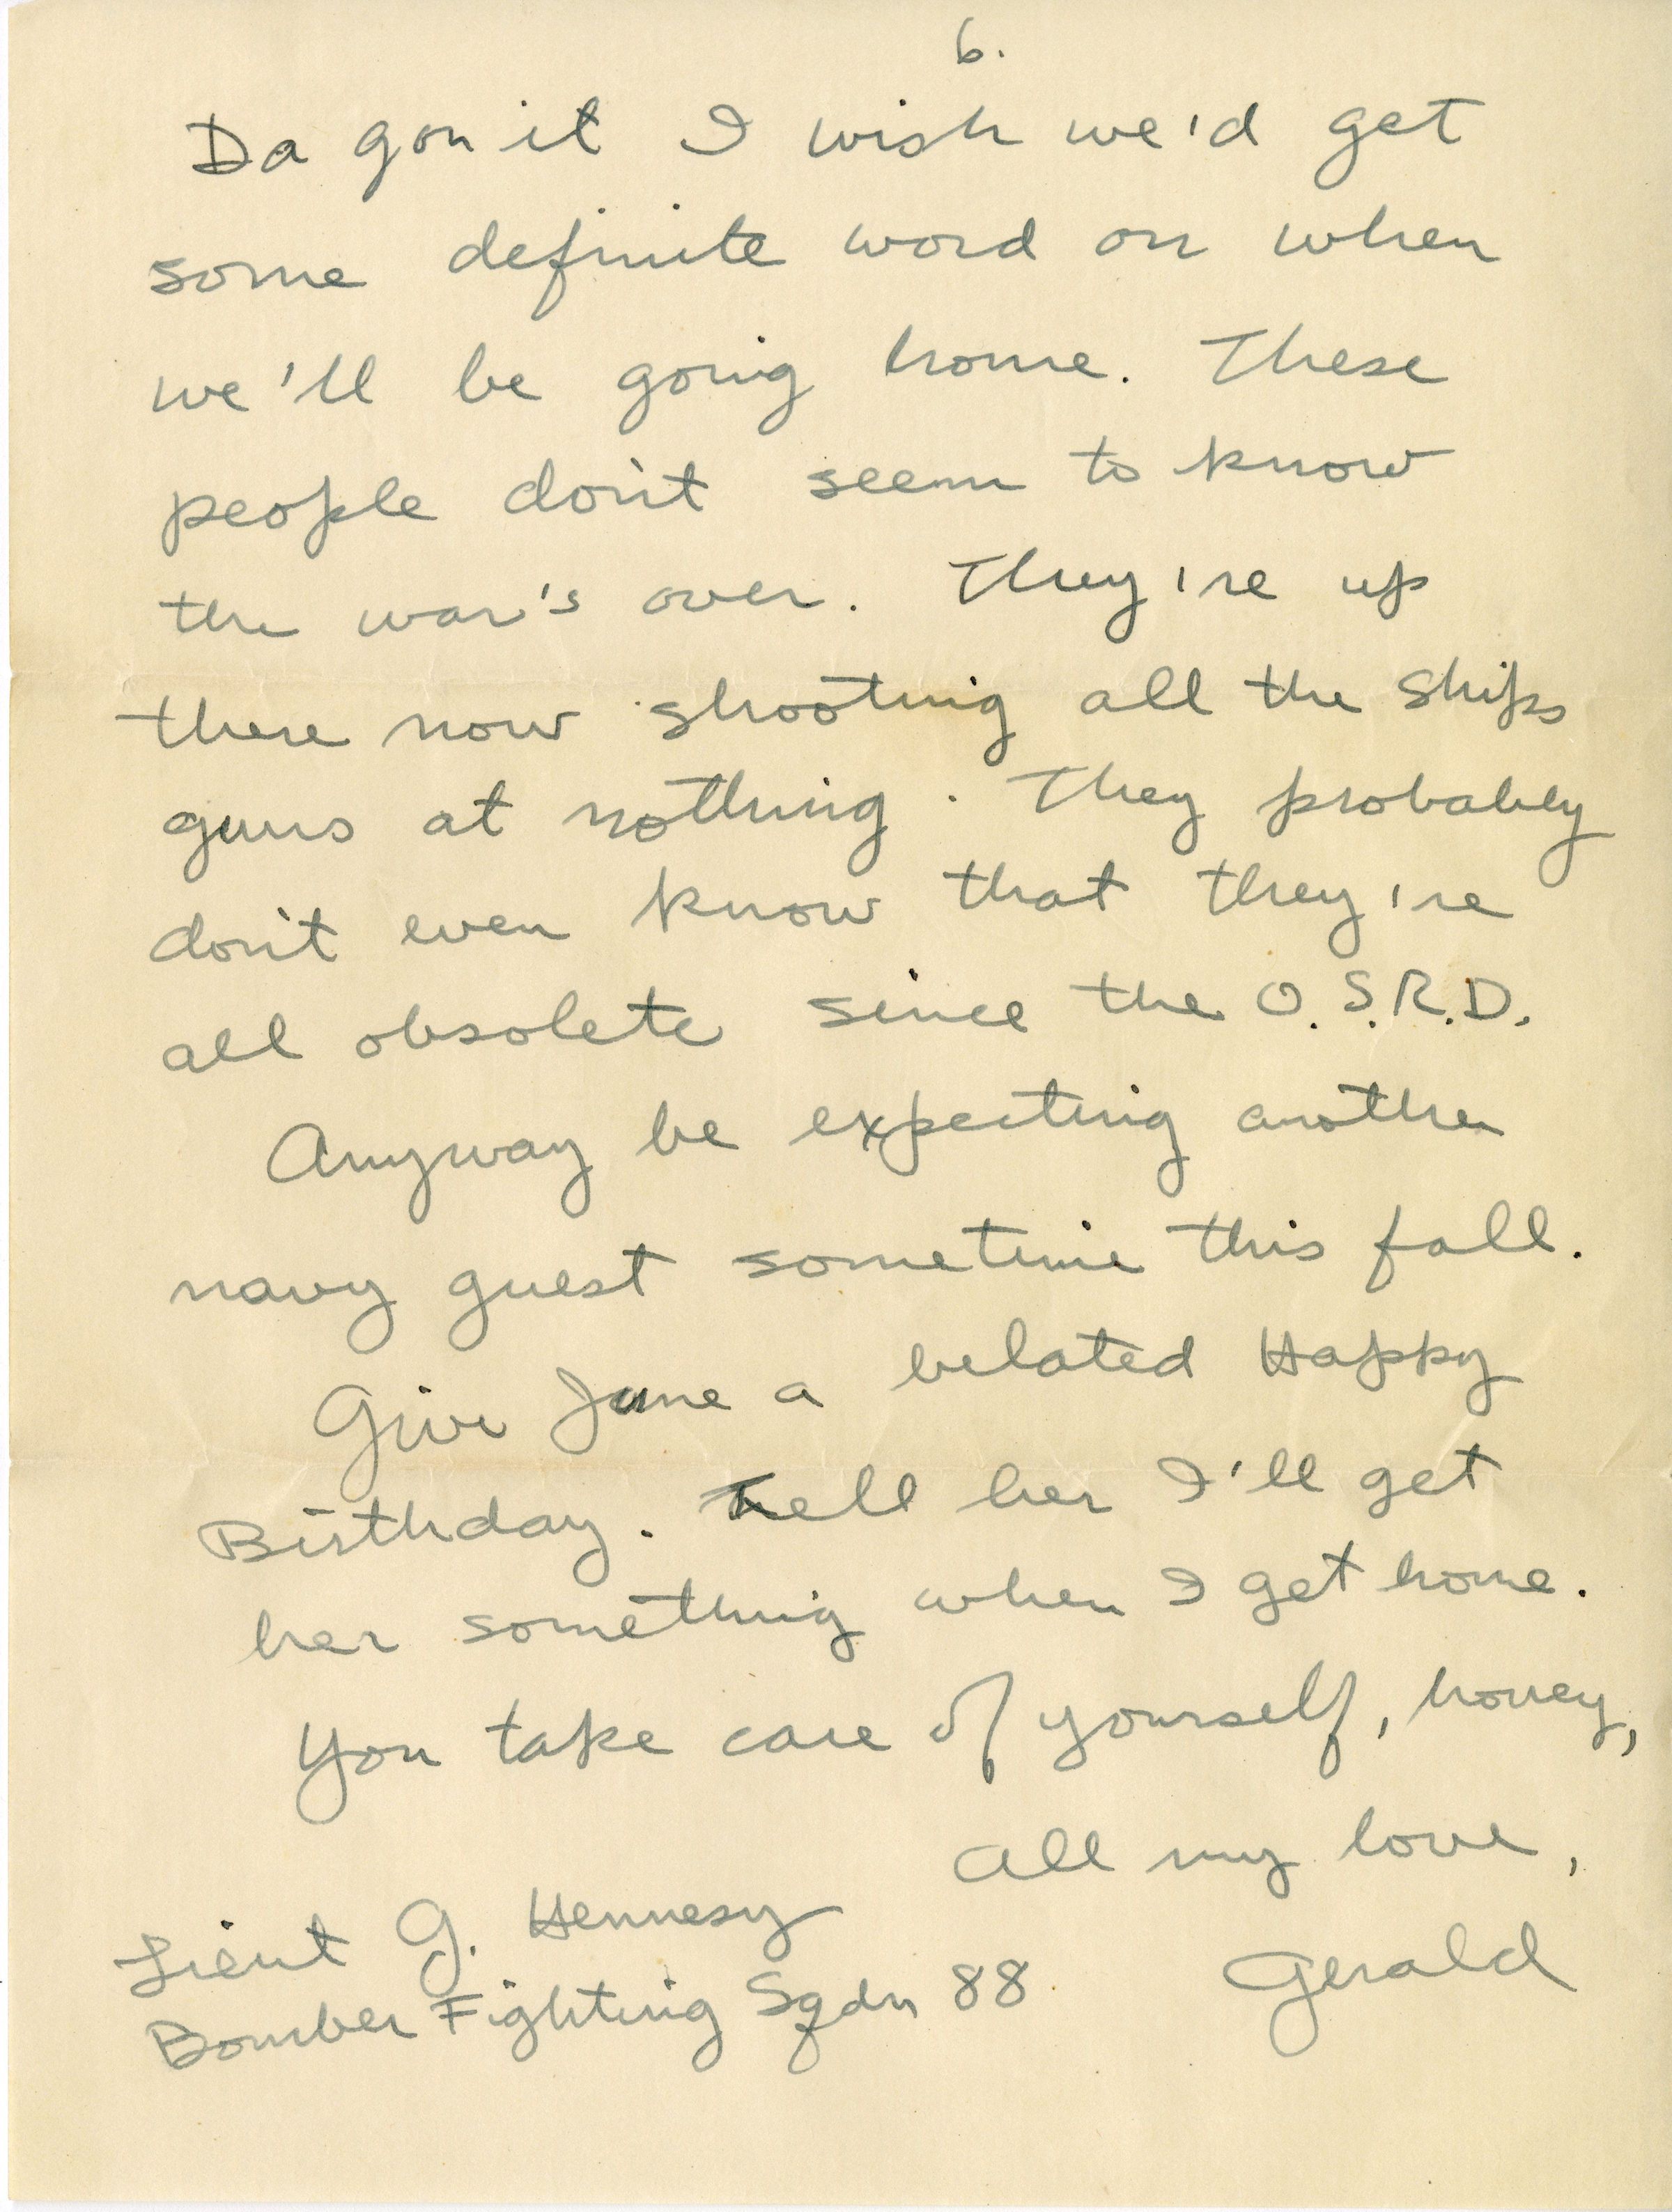 6.
Da gon it I wish we'd get
some definite word on when
we'll be going home. These
people don't seem to know
the war's over. They're up
there now shooting all the ships
guns at nothing. They probably
don't even know that they're
all obsolete since the O.S.R.D.
Anyway be expecting another
navy guest sometime this fall.
Give Jane a belated Happy
Birthday. Tell her I'll get
her something when I get home.
You take care of yourself, honey,
All my love,
Gerald
Lieut G. Hennesy
Bomber Fighting Sqdn 88